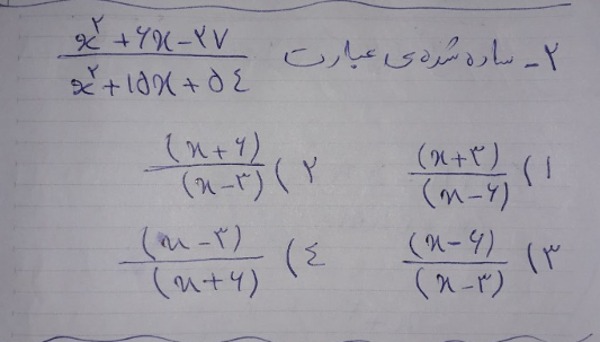 ۲- ساده شده‌ی عبارت (x²+۶x-۲۷)/(x²+۱۵x+۵۴)
۱) (x+۳)/(x-۶)    ۲) (x+۶)/(x-۳)
۳) (x-۶)/(x-۳)    ۴) (x-۳)/(x+۶)